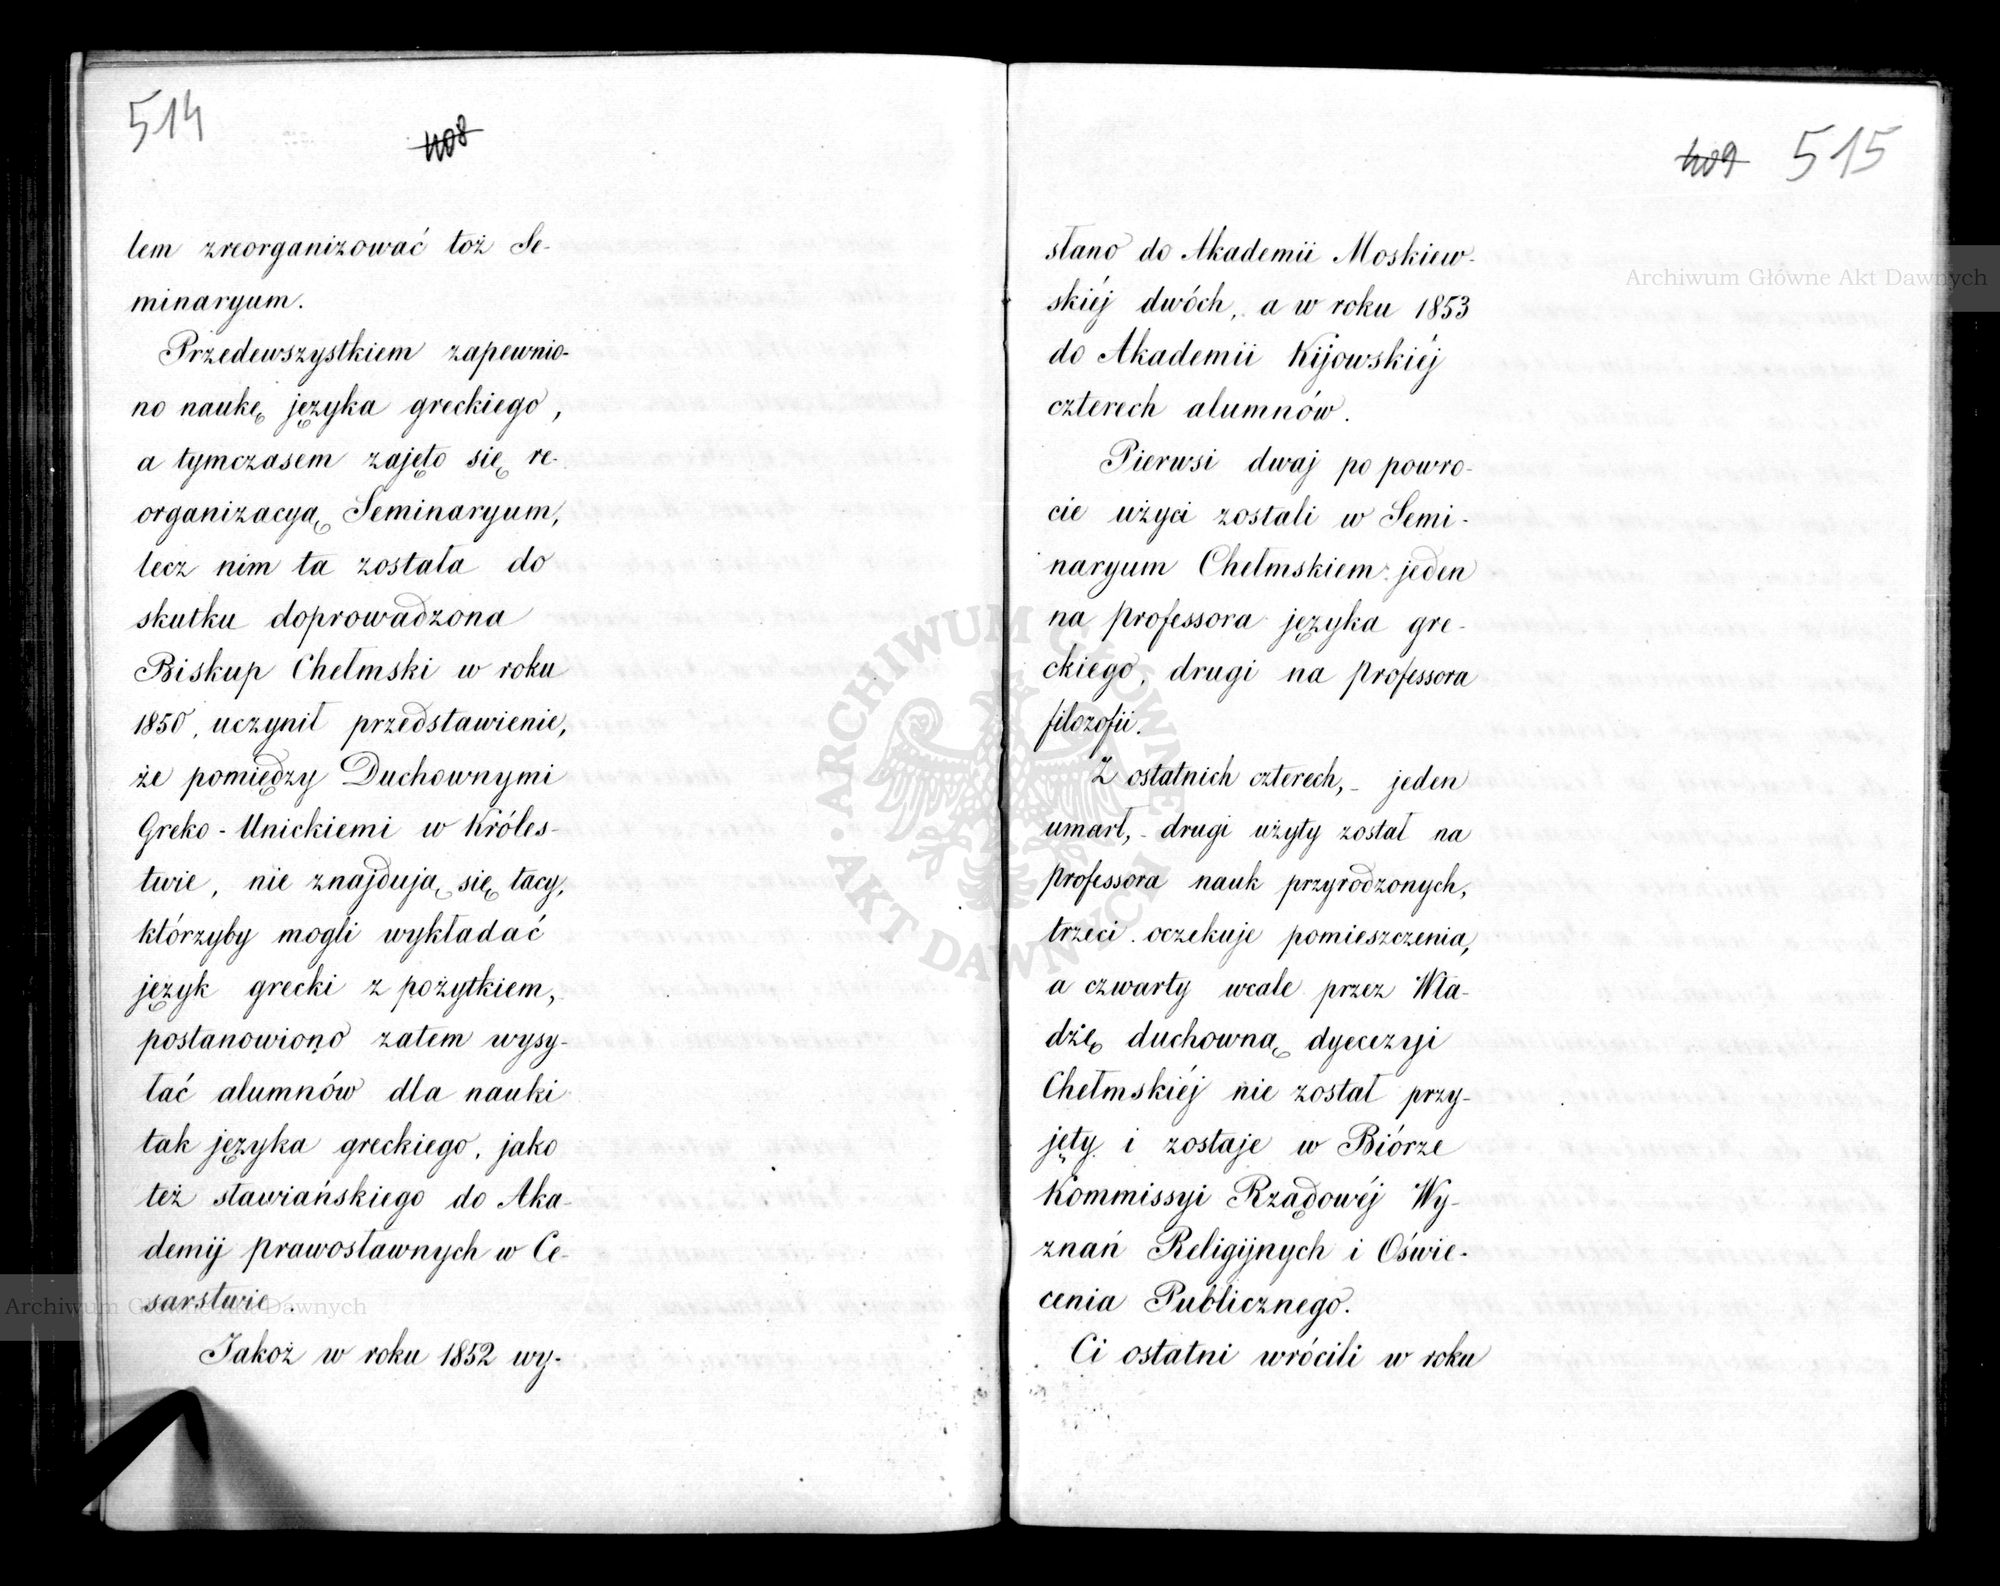 514
408
tem zreorganizować toż Se-
minaryum.
Przedewszystkiem zapewnio-
no naukę języka greckiego,
a tymczasem zajęto się re-
organizacyą Seminaryum,
lecz nim ta została do
skutku doprowadzona
Biskup Chełmski w roku
1850, uczynił przedstawienie,
że pomiędzy Duchownymi
Greko-Unickiemi w Króles-
twie, nie znajdują się tacy,
którzyby mogli wykładać
język grecki z pożytkiem,
postanowiono zatem wysy-
łać alumnów dla nauki
tak języka greckiego, jako
też sławiańskiego do Aka-
demij prawosławnych w Ce-
sarstwie.
Jakoż w roku 1852 wy-
409 515
słano do Akademii Moskiew-
skiéj dwóch, a w roku 1853
do Akademii Kijowskiéj
czterech alumnów.
Pierwsi dwaj po powro-
cie użyci zostali w Semi-
naryum Chełmskiem: jeden
na professora języka gre-
ckiego, drugi na professora
filozofii.
Z ostatnich czterech, - jeden
umarł, - drugi użyty został na
professora nauk przyrodzonych,
trzeci oczekuje pomieszczenia,
a czwarty wcale przez Wła-
dzę duchowną dyecezyi
Chełmskiéj nie został przy-
jęty i zostaje w Biórze
Kommissyi Rządowéj Wy-
znań Religijnych i Oświe-
cenia Publicznego.
Ci ostatni wrócili w roku
Archiwum Główne Akt Dawnych
Archiwum Główne Akt Dawnych
ARCHIWUM GŁÓWNE AKT DAWNYCH